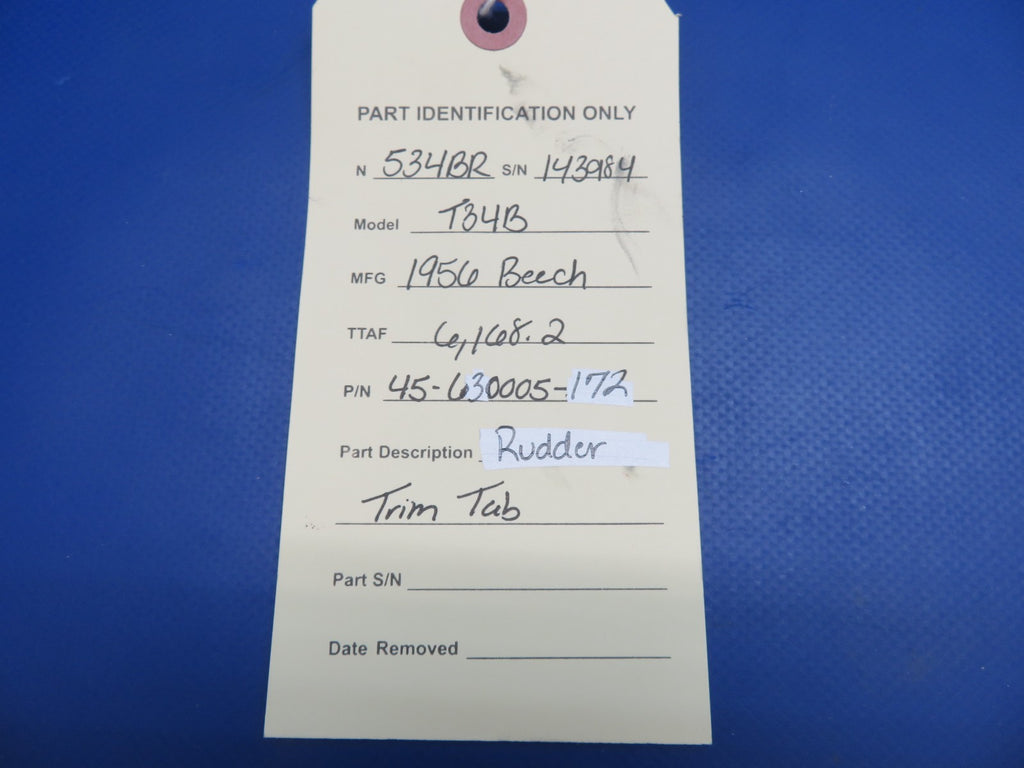 PART IDENTIFICATION ONLY
N 534BR S/N 143984
Model T34B
MFG 1956 Beech
TTAF 6,168.2
P/N 45-630005-172
Part Description Rudder
Trim Tab
Part S/N
Date Removed